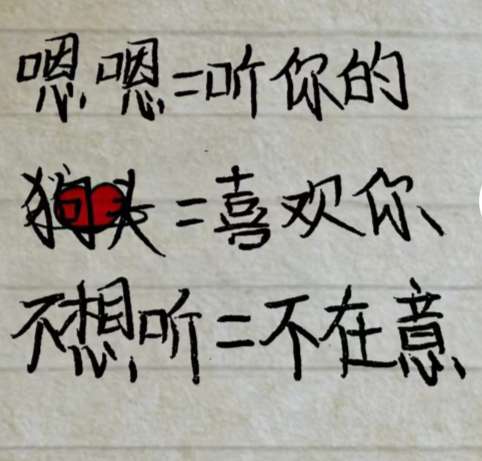 嗯嗯=听你的
狗头=喜欢你
不想听=不在意